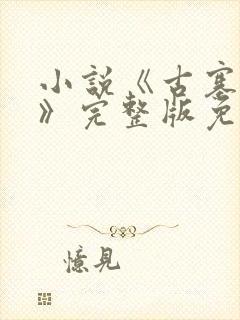 小説《古塞
》完整版免
憶見